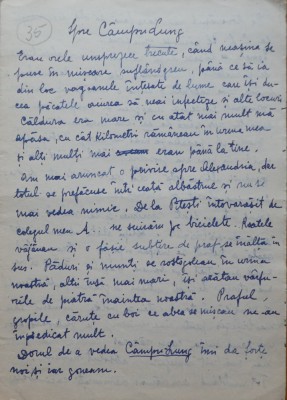 35
Spre Câmpu-Lung
Erau orele unsprezece trecute, când mașina se
puse în mișcare suflând greu, până ce să ia
din loc vagoanele înțesate de lume care își du-
cea păcatele aiurea să mai infecteze și alte locuri.
Căldura era mare și cu atât mai mult mă
apăsa, cu cât kilometri rămâneau în urma mea
și alți mulți mai erau până la tine.
Am mai aruncat o privire spre Alexandria, dar
totul se prefăcuse într'o ceață albăstrue și nu se
mai vedea nimic. De la Pitești întovărășit de
colegul meu A... ne suirăm pe biciclete. Roatele
vâjâiau și o fâșie subțire de praf, se înălța în
sus. Păduri și munți se rostogoleau în urma
noastră, alți însă mai mari, își arătau vârfu-
rile de piatră înaintea noastră. Praful
gropile, căruțe cu boi ce abea se mișcau ne-au
împiedicat mult.
Dorul de a vedea Câmpu-Lung îmi da forțe
noi și iar goneam.